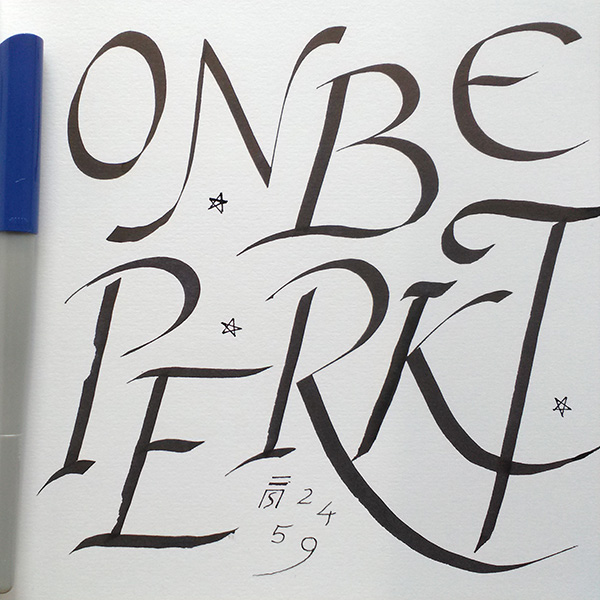 ONBE
PERKT
24
59